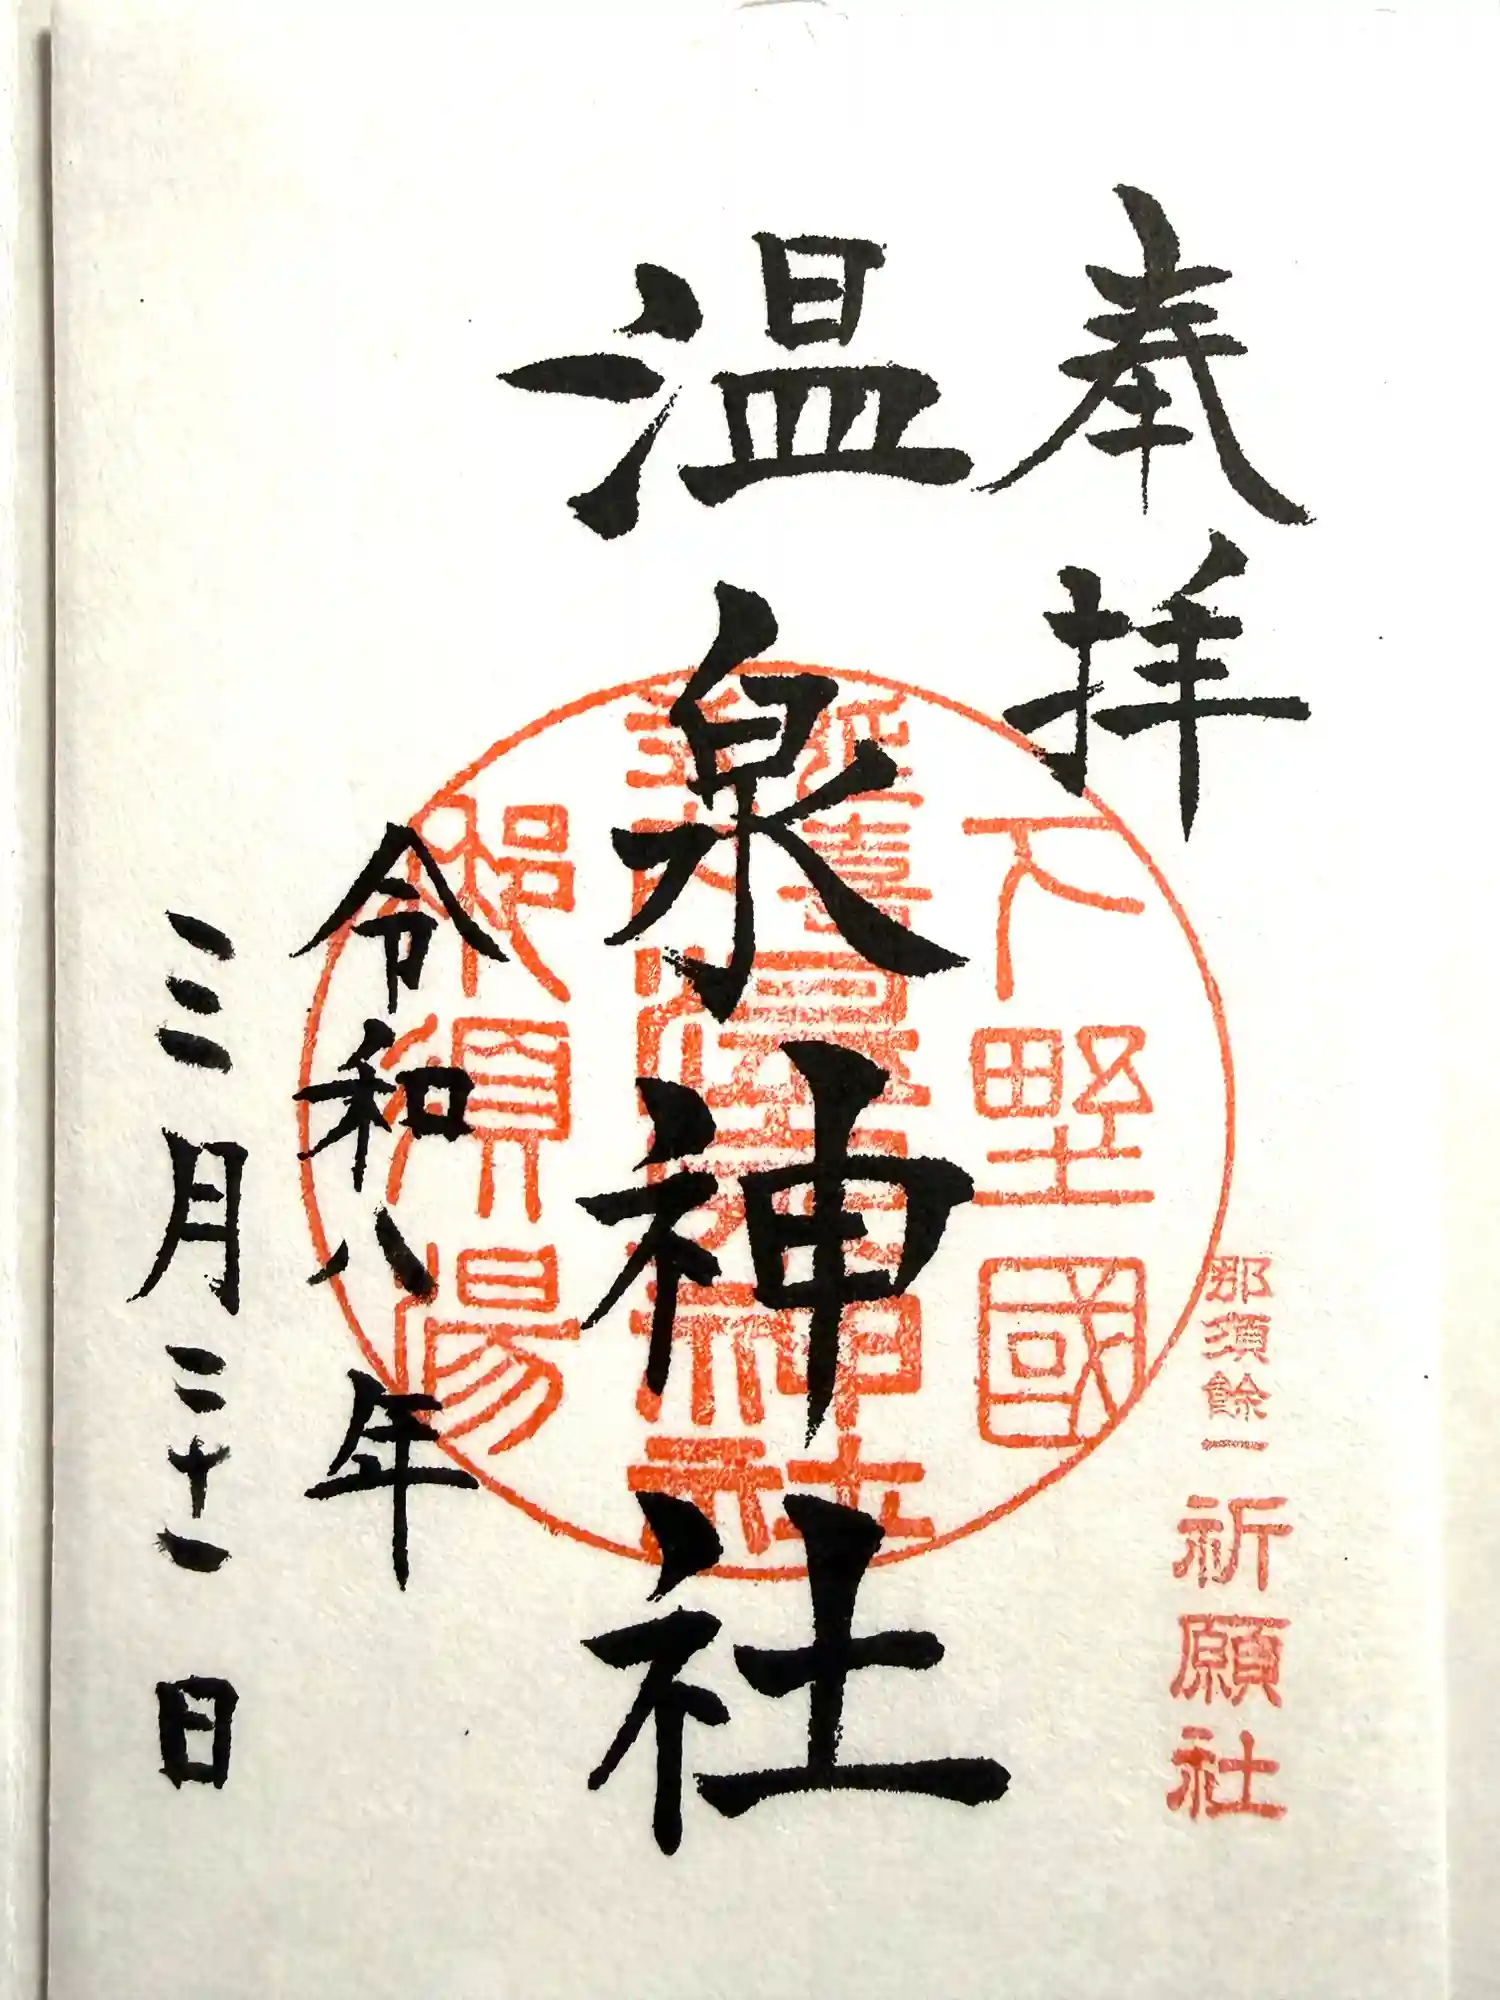 奉拝
那須餘一
祈願社
下野國
延喜式内
温泉神社
那須湯
温泉神社
令和八年
三月二十一日